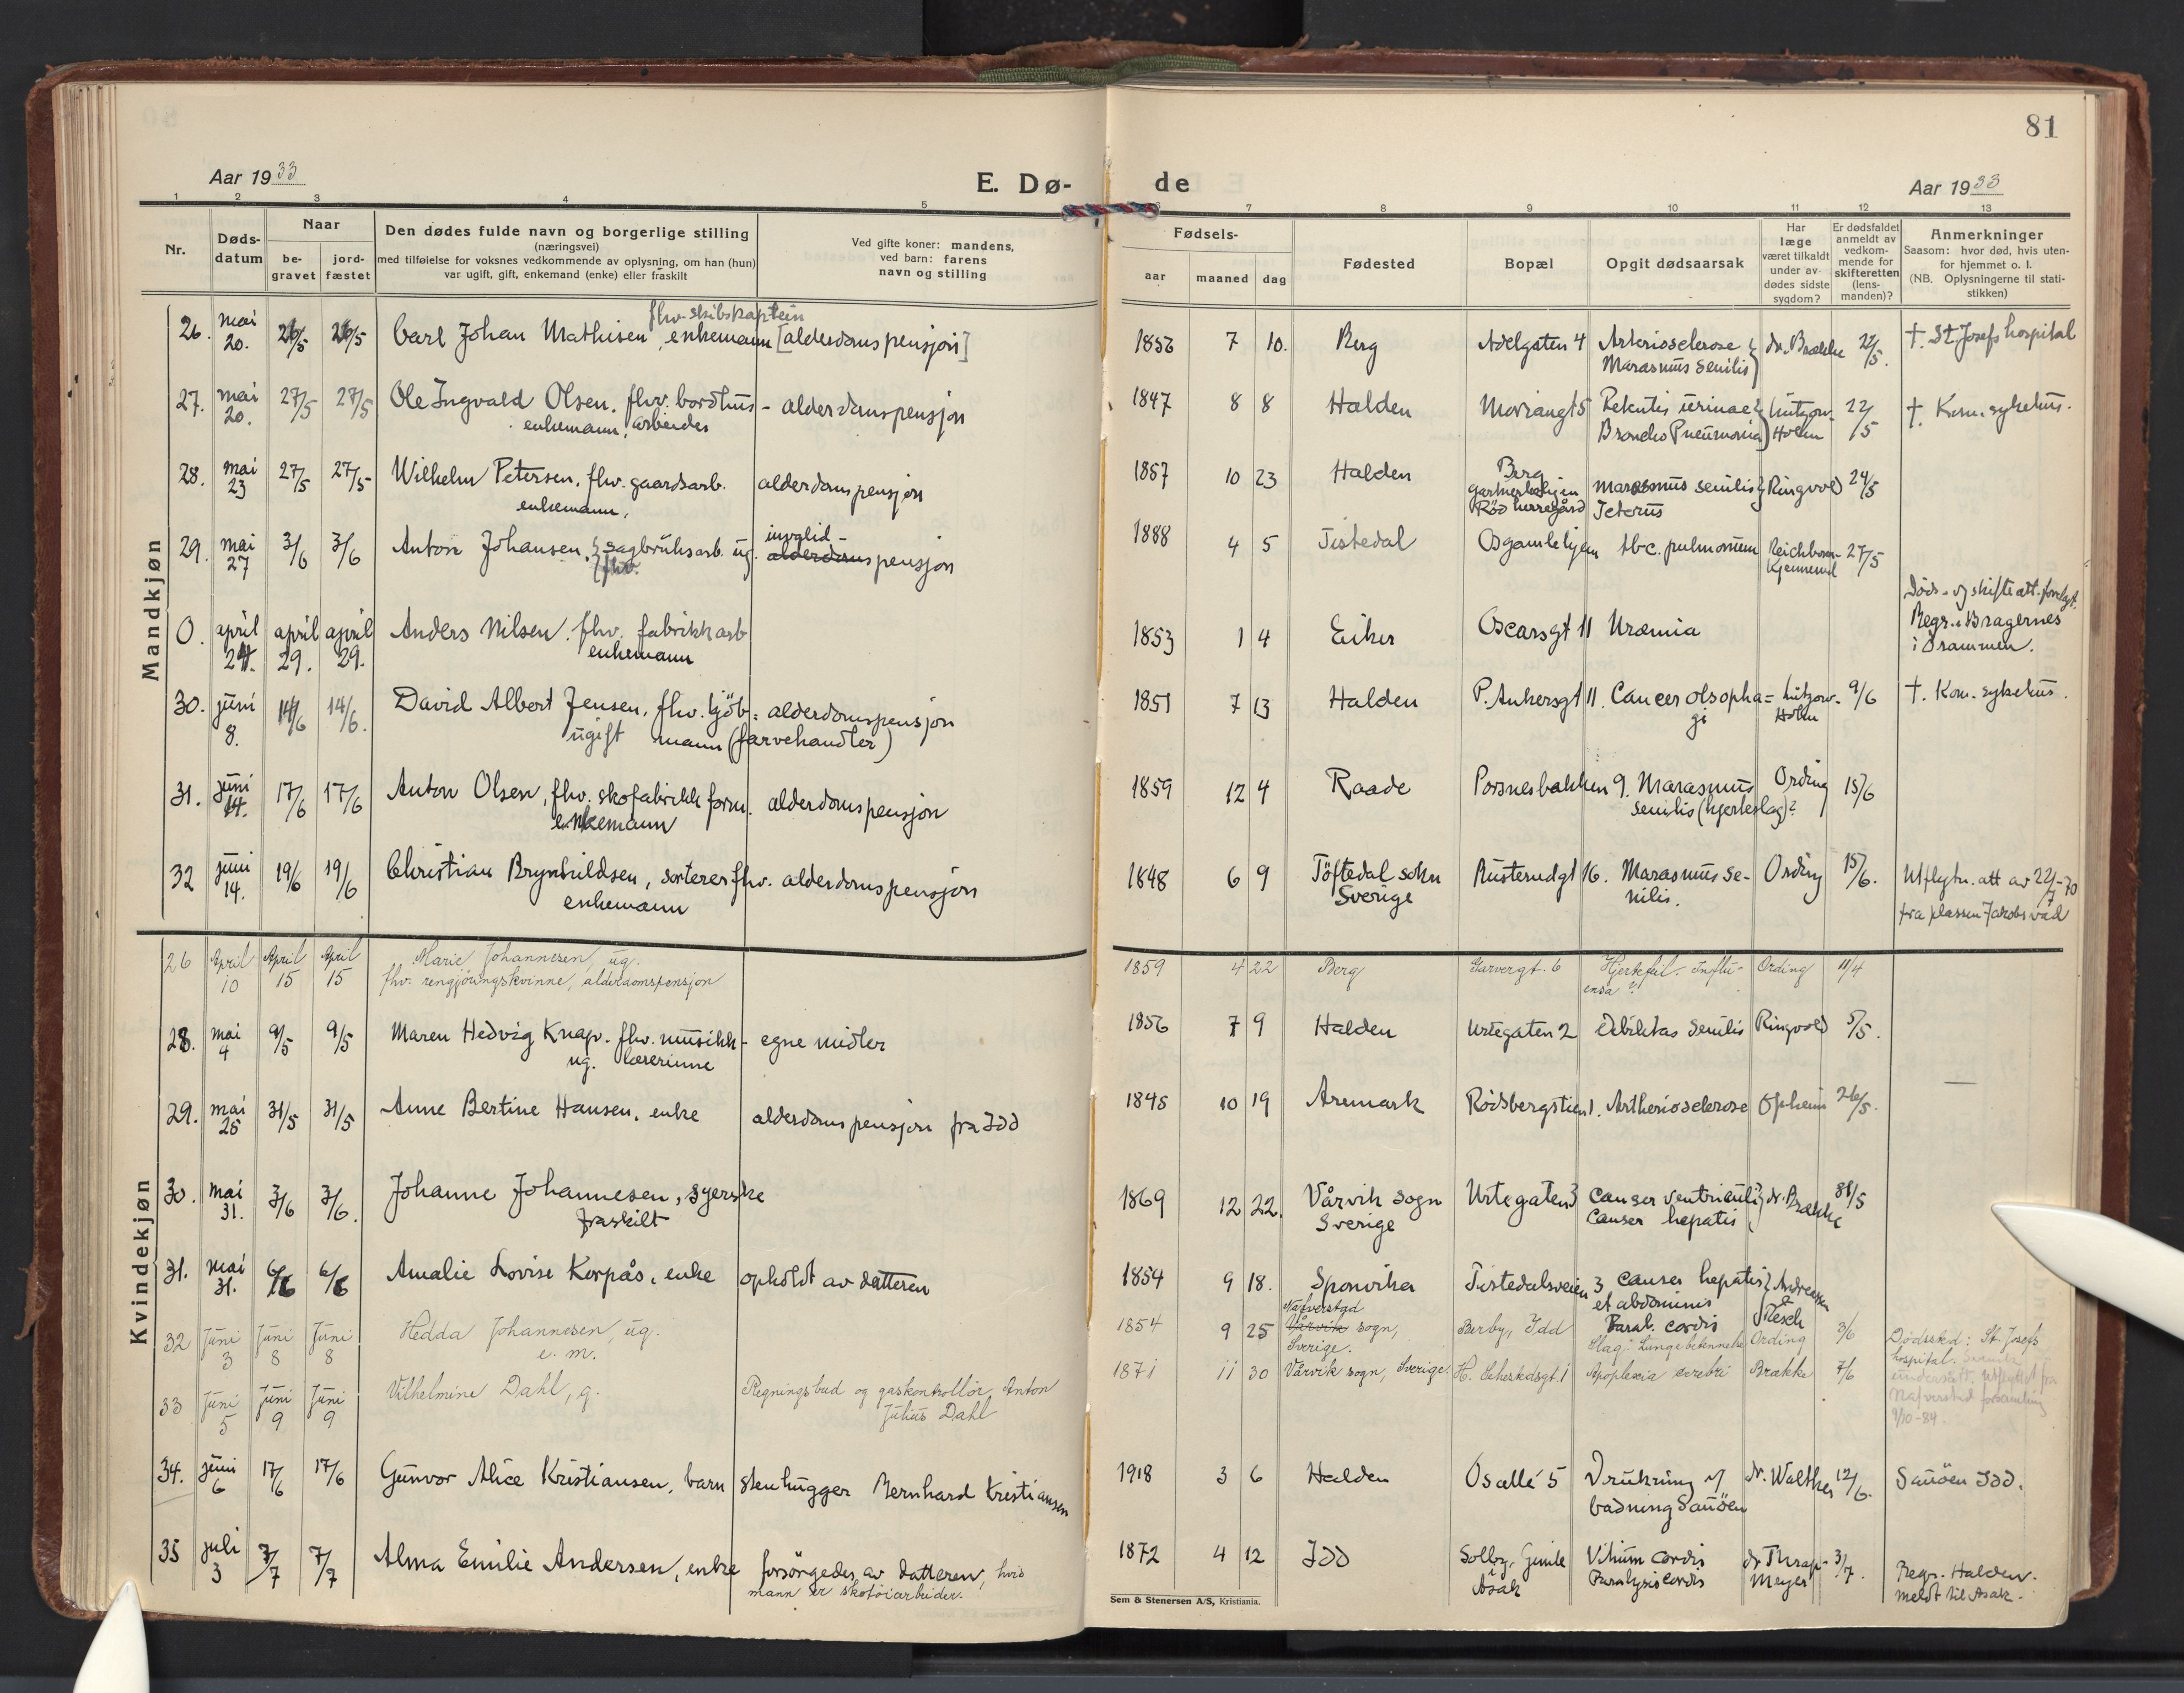 81
Aar 1933
E. Dø-
de
Aar 1933
1 2 3 4 5
6 7 8 9 10 11 12 13
Nr.
Døds-
datum
Naar
be-
gravet
jord-
fæstet
Den dødes fulde navn og borgerlige stilling
(næringsvei)
med tilføielse for voksnes vedkommende av oplysning, om han (hun)
var ugift, gift, enkemand (enke) eller fraskilt
Ved gifte koner: mandens,
ved barn: farens
navn og stilling
Fødsels-
aar maaned dag
Fødested
Bopæl
Opgit dødsaarsak
Har
læge
været tilkaldt
under av-
dødes sidste
sygdom?
Er dødsfaldet
anmeldt av
vedkom-
mende for
skifteretten
(lens-
manden)?
Anmerkninger
Saasom: hvor død, hvis uten-
for hjemmet o. l.
(NB. Oplysningerne til stati-
stikken)
Mandkjøn
fhv. skibskaptein
26. mai 20. 26/5 26/5 Carl Johan Mathisen, enkemann [alderdomspensjon] 1856 7 10. Berg Adelgaten 4 Arteriosclerose dr. Brække 22/5. †. St. Josefs hospital
Marasmus senilis
27. mai 20. 27/5 27/5 Ole Ingvald Olsen. fhv. bordhus- alderdomspensjon 1847 8 8 Halden Moviangt 5 Retentio urinae Lützow- 22/5 †. Kom. sykehus.
enkemann. arbeider Broncho Pneumonia Holm
28. mai 23 27/5 27/5 Wilhelm Petersen. fhv. gaardsarb. alderdomspensjon 1857 10 23 Halden Berg marasmus senilis Ringvold 24/5
enkemann. gartnerboligen
Rød herregård Icterus
29. mai 27 3/6 3/6 Anton Johansen, sagbruksarb. ug. invalid- 1888 4 5 Tistedal Osgamlehjem tbc. pulmonum Reichborn- 27/5
fhv. alderdomspensjon Kjennerud
0. april 24. april 29. april 29. Anders Nilsen. fhv. fabrikkarb 1853 1 4 Eiker Oscarsgt 11 Uræmia Døds- og skifteatt. forelagt.
enkemann Regr. i Bragernes
i Drammen.
30. juni 8. 14/6 14/6. David Albert Jensen, fhv. kjöb= alderdomspensjon 1851 7 13 Halden P. Ankersgt 11. Cancer olsopha= Lützow- 9/6 †. Kom. sykehus.
ugift mann (farvehandler) gi Holm
31. juni 14. 17/6 17/6 Anton Olsen, fhv. skofabrikk form. alderdomspensjon 1859 12 4 Raade Porsnesbakken 9. Marasmus Ording 15/6
enkemann senilis (hjerteslag)?
32 juni 14. 19/6 19/6 Christian Brynhildsen, sorterer fhv. alderdomspensjon 1848 6 9 Töftedal sokn Rusterudgt 16. Marasmus se- Ording 15/6. Utflytn. att av 22/7-70
enkemann Sverige nilis. fra plassen Jakobs vad
Kvindekjøn
26 April 10 April 15 April 15 Marie Johannesen, ug. 1859 4 22 Berg Garvergt. 6 Hjertefeil - Influ- Ording 11/4
fhv. rengjöringskvinne, alderdomspensjon ensa?
28. mai 4 9/5 9/5 Maren Hedvig Knap. fhv. musikk- egne midler 1856 7 9 Halden Urtegaten 2 debilitas senilis Ringvold 5/5.
ug. lærerinne
29. mai 25 31/5 31/5 Anne Bertine Hansen, enke alderdomspensjon fra Idd 1845 10 19 Aremark Rödsbergstien 1. Artheriosclerose Opheim 26/5.
30. mai 31. 3/6 3/6. Johanne Johannesen, syerske 1869 12 22. Vårvik sogn Urtegaten 3 Canser ventriculi dr. Brække 31/5
fraskilt Sverige Canser hepatis
31. mai 31. 6/6 6/6 Amalie Lovise Korpås, enke opholdt av datteren 1854 9 18. Sponvika Tistedalsveien 3 Canser hepatis Andreassen
et abdominis & Resch
Paral. cordis
32 Juni 3 Juni 8 Juni 8 Hedda Johannesen, ug. 1854 9 25 Nafverstad Berby, Idd Slag: Lungebetennelse Ording 3/6 Dödssted: St. Josefs
e. m. Vårvik sogn, Sverige. hospital.
utflyttet fra
Nafverstad forsamling
9/10-84.
33 Juni 5 Juni 9 Juni 9 Vilhelmine Dahl, g. Regningsbud og gaskontrollör Anton 1871 11 30 Vårvik sogn, Sverige. Apoplexia cerebri Brække 7/6
Julius Dahl
34. juni 6 17/6 17/6 Gunvor Alice Kristiansen, barn stenhugger Bernhard Kristiansen 1918 3 6 Halden Osallé 5 Drukning v/ dr. Walther 12/6. Sauöen Idd.
badning Sauöen
35 juli 3 7/7 7/7 Alma Emilie Andersen, enke forsörgedes av datteren, hvis 1872 4 12 Idd Solby, Gimle Vitium cordis dr Thrap- 3/7. Regr. Halden.
mann er skotöiarbeider. i Asak Paralysis cordis Meyer meldt til Asak.
Sem & Stenersen A/S, Kristiania.